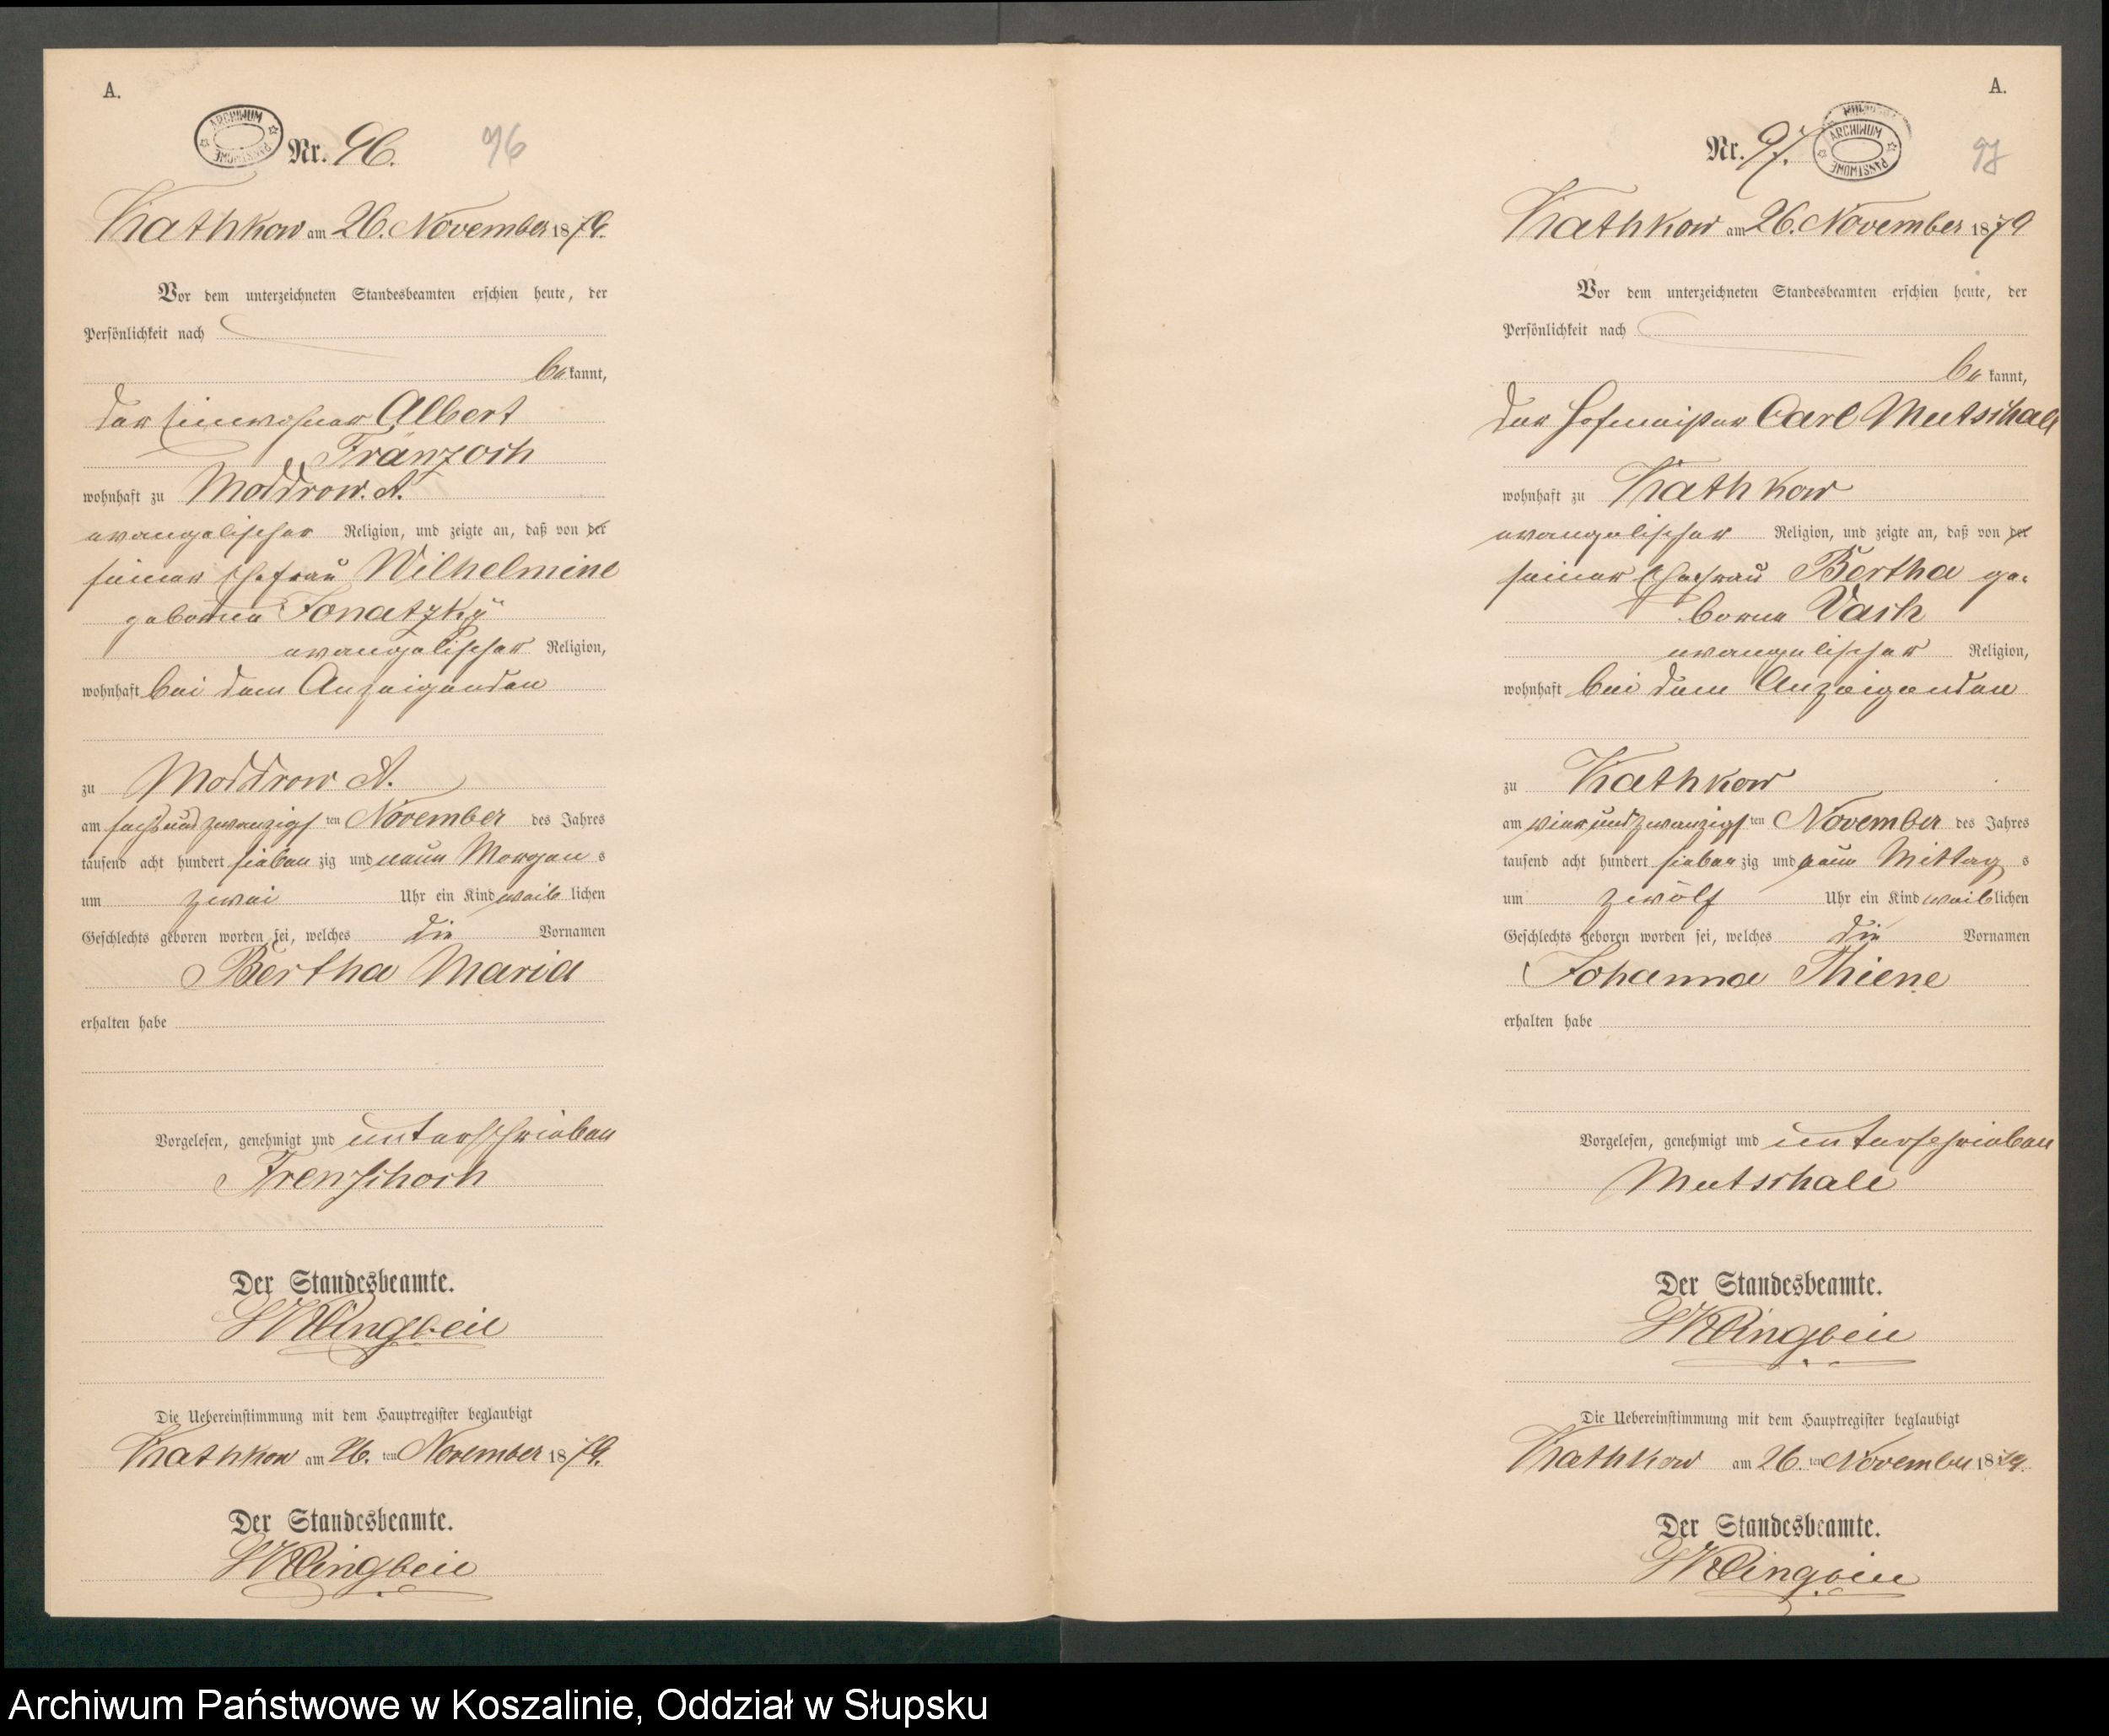 A.
ARCHIWUM PAŃSTWOWE
Nr. 96.
96
Kathkow am 26. November 1879.
Vor dem unterzeichneten Standesbeamten erschien heute, der
Persönlichkeit nach
be kannt,
der Einwohner Albert
Franzoch
wohnhaft zu Moddrow. A.
evangelischer Religion, und zeigte an, daß von der
seiner Ehefrau Wilhelmine
geborne Jonatzky
evangelischer Religion,
wohnhaft bei dem Anzeigenden
zu Moddrow A.
am sechsundzwanzigsten November des Jahres
tausend acht hundert siebenzig und neun Morgens
um zwei Uhr ein Kind weiblichen
Geschlechts geboren worden sei, welches die Vornamen
Bertha Maria
erhalten habe
Vorgelesen, genehmigt und unterschrieben
Frenschoch
Der Standesbeamte.
Klingbeil
Die Uebereinstimmung mit dem Hauptregister beglaubigt
Kathkow am 26. ten November 1879.
Der Standesbeamte.
Klingbeil
A.
Nr. 97.
ARCHIWUM PAŃSTWOWE
97
Kathkow am 26. November 1879
Vor dem unterzeichneten Standesbeamten erschien heute, der
Persönlichkeit nach
be kannt,
der Hofmeister Carl Mutschall
wohnhaft zu Kathkow
evangelischer Religion, und zeigte an, daß von der
seiner Ehefrau Bertha ge-
borne Vach
evangelischer Religion,
wohnhaft bei dem Anzeigenden
zu Kathkow
am vierundzwanzigsten November des Jahres
tausend acht hundert siebenzig und neun Mittags
um zwölf Uhr ein Kind weiblichen
Geschlechts geboren worden sei, welches die Vornamen
Johanna Thiene
erhalten habe
Vorgelesen, genehmigt und unterschrieben
Mutschall
Der Standesbeamte.
Klingbeil
Die Uebereinstimmung mit dem Hauptregister beglaubigt
Kathkow am 26. ten November 1879.
Der Standesbeamte.
Klingbeil
Archiwum Państwowe w Koszalinie, Oddział w Słupsku